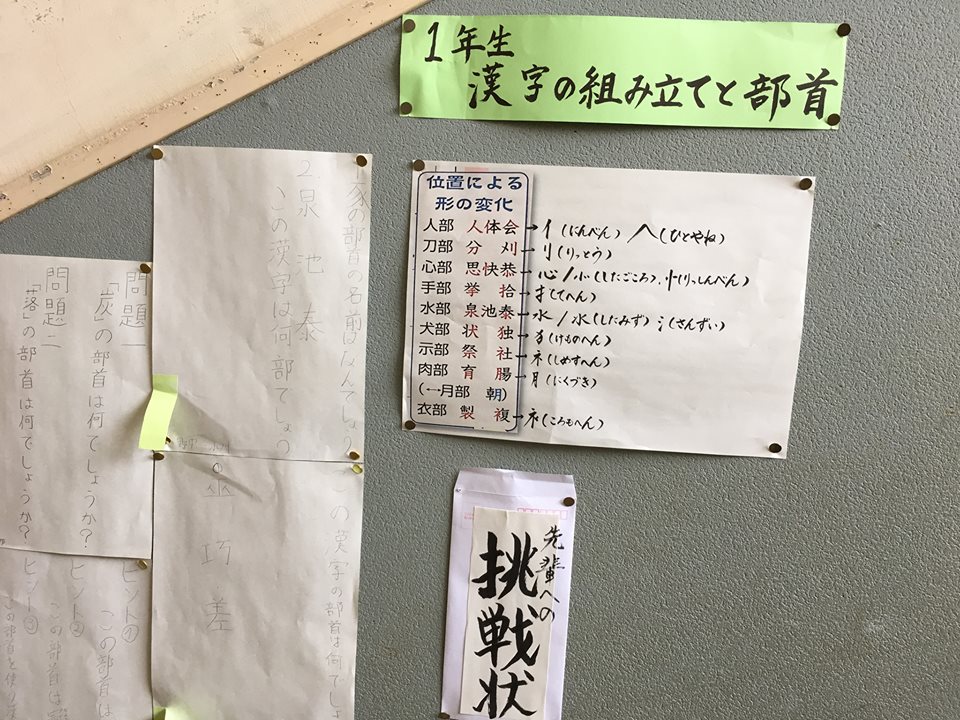 1年生
漢字の組み立てと部首
位置による
形の変化
人部 人体会→亻(にんべん) 𠆢(ひとやね)
刀部 分 刈→刂(りっとう)
心部 思快恭→心/㣺(したごころ)、忄(りっしんべん)
手部 挙 拾→扌(てへん)
水部 泉池泰→水/氺(したみず) 氵(さんずい)
犬部 状 独→犭(けものへん)
示部 祭 社→礻(しめすへん)
肉部 育 腸→月(にくづき)
(→月部 朝)
衣部 製 複→衤(ころもへん)
先輩への
挑戦状
1.豚の部首の名前はなんてしょう
2.泉 池 泰
この漢字は何部でしょう
この漢字の部首は何でしょ
巫 巧 差
問題一
「灰」の部首は何でしょうか?
問題二
「落」の部首は何でしょうか?
ヒント①
この部首は
ヒント②
この部首は
ヒント③
この部首を使